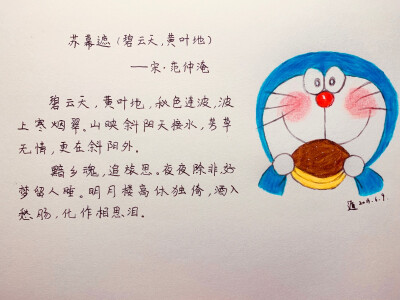 苏幕遮(碧云天,黄叶地)
——宋·范仲淹
碧云天,黄叶地,秋色连波,波
上寒烟翠。山映斜阳天接水,芳草
无情,更在斜阳外。
黯乡魂,追旅思。夜夜除非,好
梦留人睡。明月楼高休独倚,酒入
愁肠,化作相思泪。